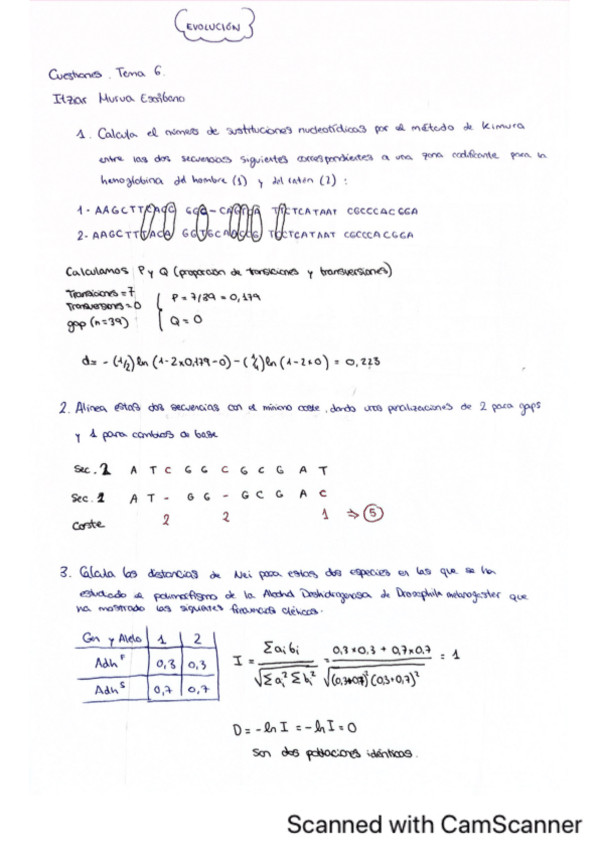 EVOLUCIÓN
Cuestiones. Tema 6.
Itziar Murua Escribano
1. Calcula el número de sustituciones nucleotídicas por el método de Kimura
entre las dos secuencias siguientes correspondientes a una zona codificante para la
hemoglobina del hombre (1) y del ratón (2):
1- AAGCTT
2- AAGCTT
TCATAAT CGCCCACGGA
TCATAAT CGCCCACGGA
Calculamos P y Q (proporción de transiciones y transversiones)
Transiciones = 7
Transversiones = 0
gap (n=39)
P = 7/39 = 0,179
Q = 0
d = - (1/2) ln (1-2x0,179-0) - (1/4) ln (1-2x0) = 0,223
2. Alinea estas dos secuencias con el mínimo coste, dando unas penalizaciones de 2 para gaps
y 1 para cambios de base
Sec. 2 A T C G G C G C G A T
Sec. 1 A T - G G - G C G A C
Coste 2 2 1 ⇒ 5
3. Calcula las distancias de Nei para estas dos especies en las que se ha
estudiado el polimorfismo de la Alcohol Deshidrogenasa de Drosophila melanogaster que
ha mostrado las siguientes frecuencias alélicas.
Gen y Alelo 1 2
Adhᶠ 0,3 0,3
Adhˢ 0,7 0,7
I = Σaᵢbᵢ / √Σaᵢ² Σbᵢ² = 0,3×0,3 + 0,7×0,7 / √(0,3+0,7)² (0,3+0,7)² = 1
D = -ln I = -ln I = 0
Son dos poblaciones idénticas.
Scanned with CamScanner